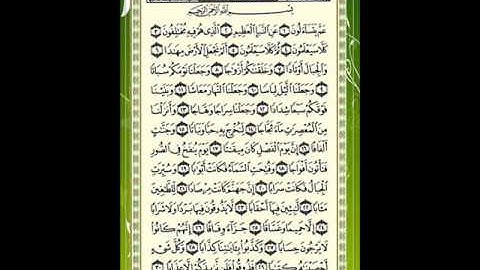 بِسْمِ اللَّهِ الرَّحْمَٰنِ الرَّحِيمِ
عَمَّ يَتَسَاءَلُونَ ١ عَنِ النَّبَإِ الْعَظِيمِ ٢ الَّذِي هُمْ فِيهِ مُخْتَلِفُونَ ٣
كَلَّا سَيَعْلَمُونَ ٤ ثُمَّ كَلَّا سَيَعْلَمُونَ ٥ أَلَمْ نَجْعَلِ الْأَرْضَ مِهَٰدًا ٦
وَالْجِبَالَ أَوْتَادًا ٧ وَخَلَقْنَٰكُمْ أَزْوَٰجًا ٨ وَجَعَلْنَا نَوْمَكُمْ سُبَاتًا
٩ وَجَعَلْنَا الَّيْلَ لِبَاسًا ١٠ وَجَعَلْنَا النَّهَارَ مَعَاشًا ١١ وَبَنَيْنَا
فَوْقَكُمْ سَبْعًا شِدَادًا ١٢ وَجَعَلْنَا سِرَاجًا وَهَّاجًا ١٣ وَأَنزَلْنَا
مِنَ الْمُعْصِرَٰتِ مَاءً ثَجَّاجًا ١٤ لِّنُخْرِجَ بِهِ حَبًّا وَنَبَاتًا ١٥ وَجَنَّٰتٍ
أَلْفَافًا ١٦ إِنَّ يَوْمَ الْفَصْلِ كَانَ مِيقَٰتًا ١٧ يَوْمَ يُنفَخُ فِي الصُّورِ
فَتَأْتُونَ أَفْوَاجًا ١٨ وَفُتِحَتِ السَّمَاءُ فَكَانَتْ أَبْوَٰبًا ١٩ وَسُيِّرَتِ
الْجِبَالُ فَكَانَتْ سَرَابًا ٢٠ إِنَّ جَهَنَّمَ كَانَتْ مِرْصَادًا ٢١ لِّلطَّٰغِينَ
مَـَٔابًا ٢٢ لَّٰبِثِينَ فِيهَا أَحْقَابًا ٢٣ لَّا يَذُوقُونَ فِيهَا بَرْدًا وَلَا شَرَابًا
٢٤ إِلَّا حَمِيمًا وَغَسَّاقًا ٢٥ جَزَاءً وِفَاقًا ٢٦ إِنَّهُمْ كَانُوا
لَا يَرْجُونَ حِسَابًا ٢٧ وَكَذَّبُوا بِـَٔايَٰتِنَا كِذَّابًا ٢٨ وَكُلَّ شَيْءٍ
أَحْصَيْنَٰهُ كِتَٰبًا ٢٩ فَذُوقُوا فَلَن نَّزِيدَكُمْ إِلَّا عَذَابًا ٣٠